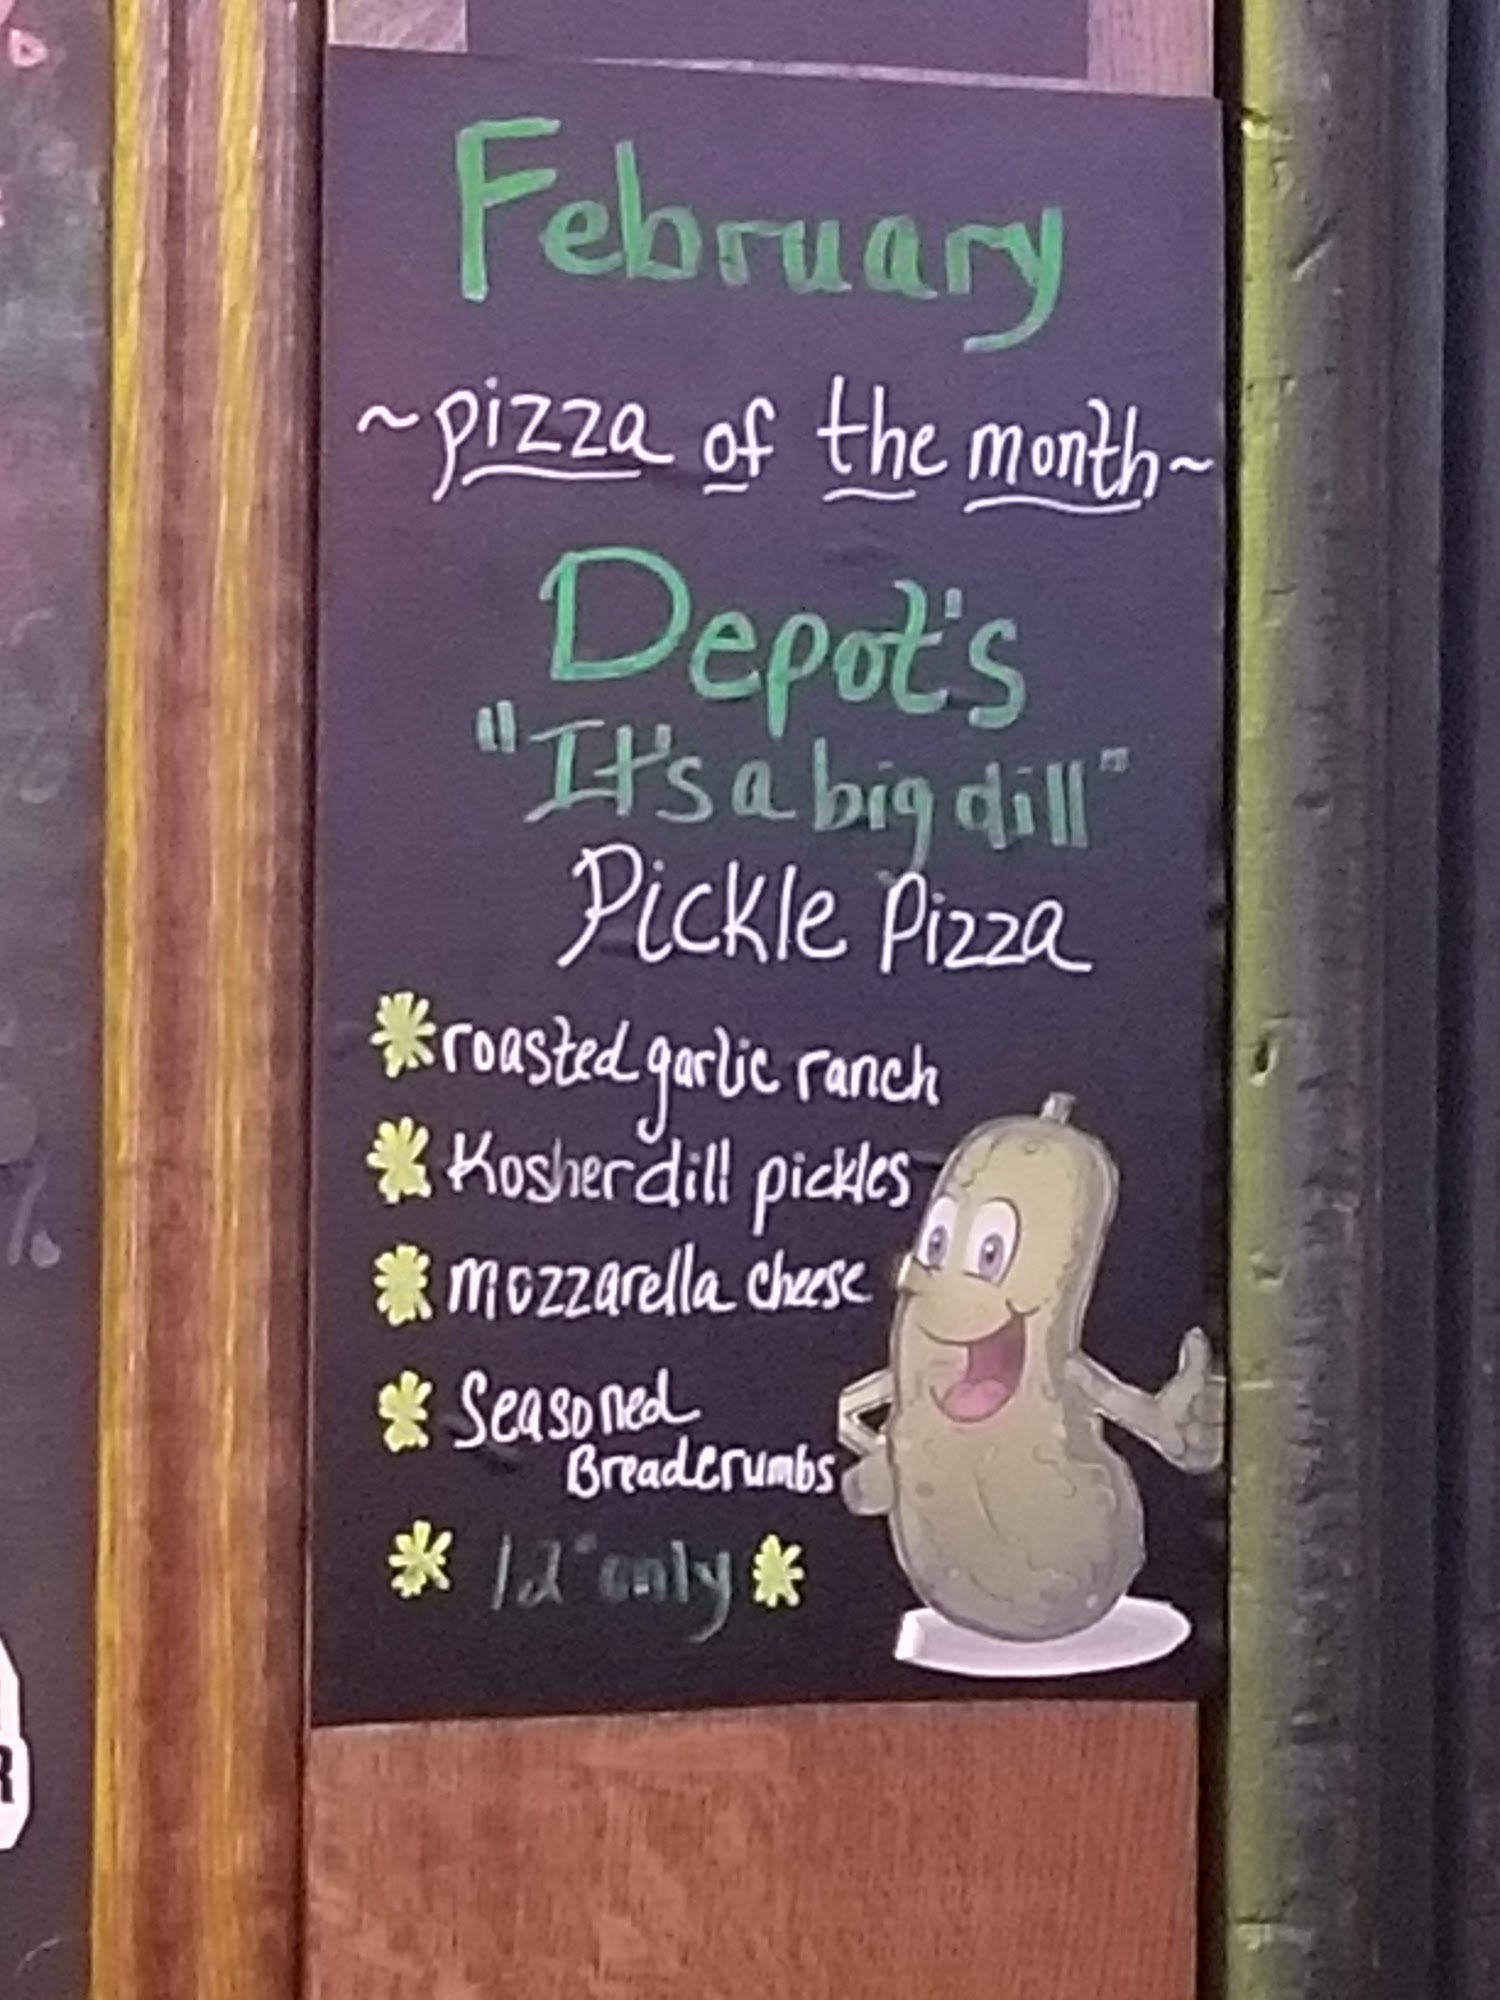 February
~pizza of the month~
Depot's
"It's a big dill"
Pickle Pizza
roasted garlic ranch
Kosher dill pickles
mozzarella cheese
Seasoned
Breadcrumbs
12" only
R